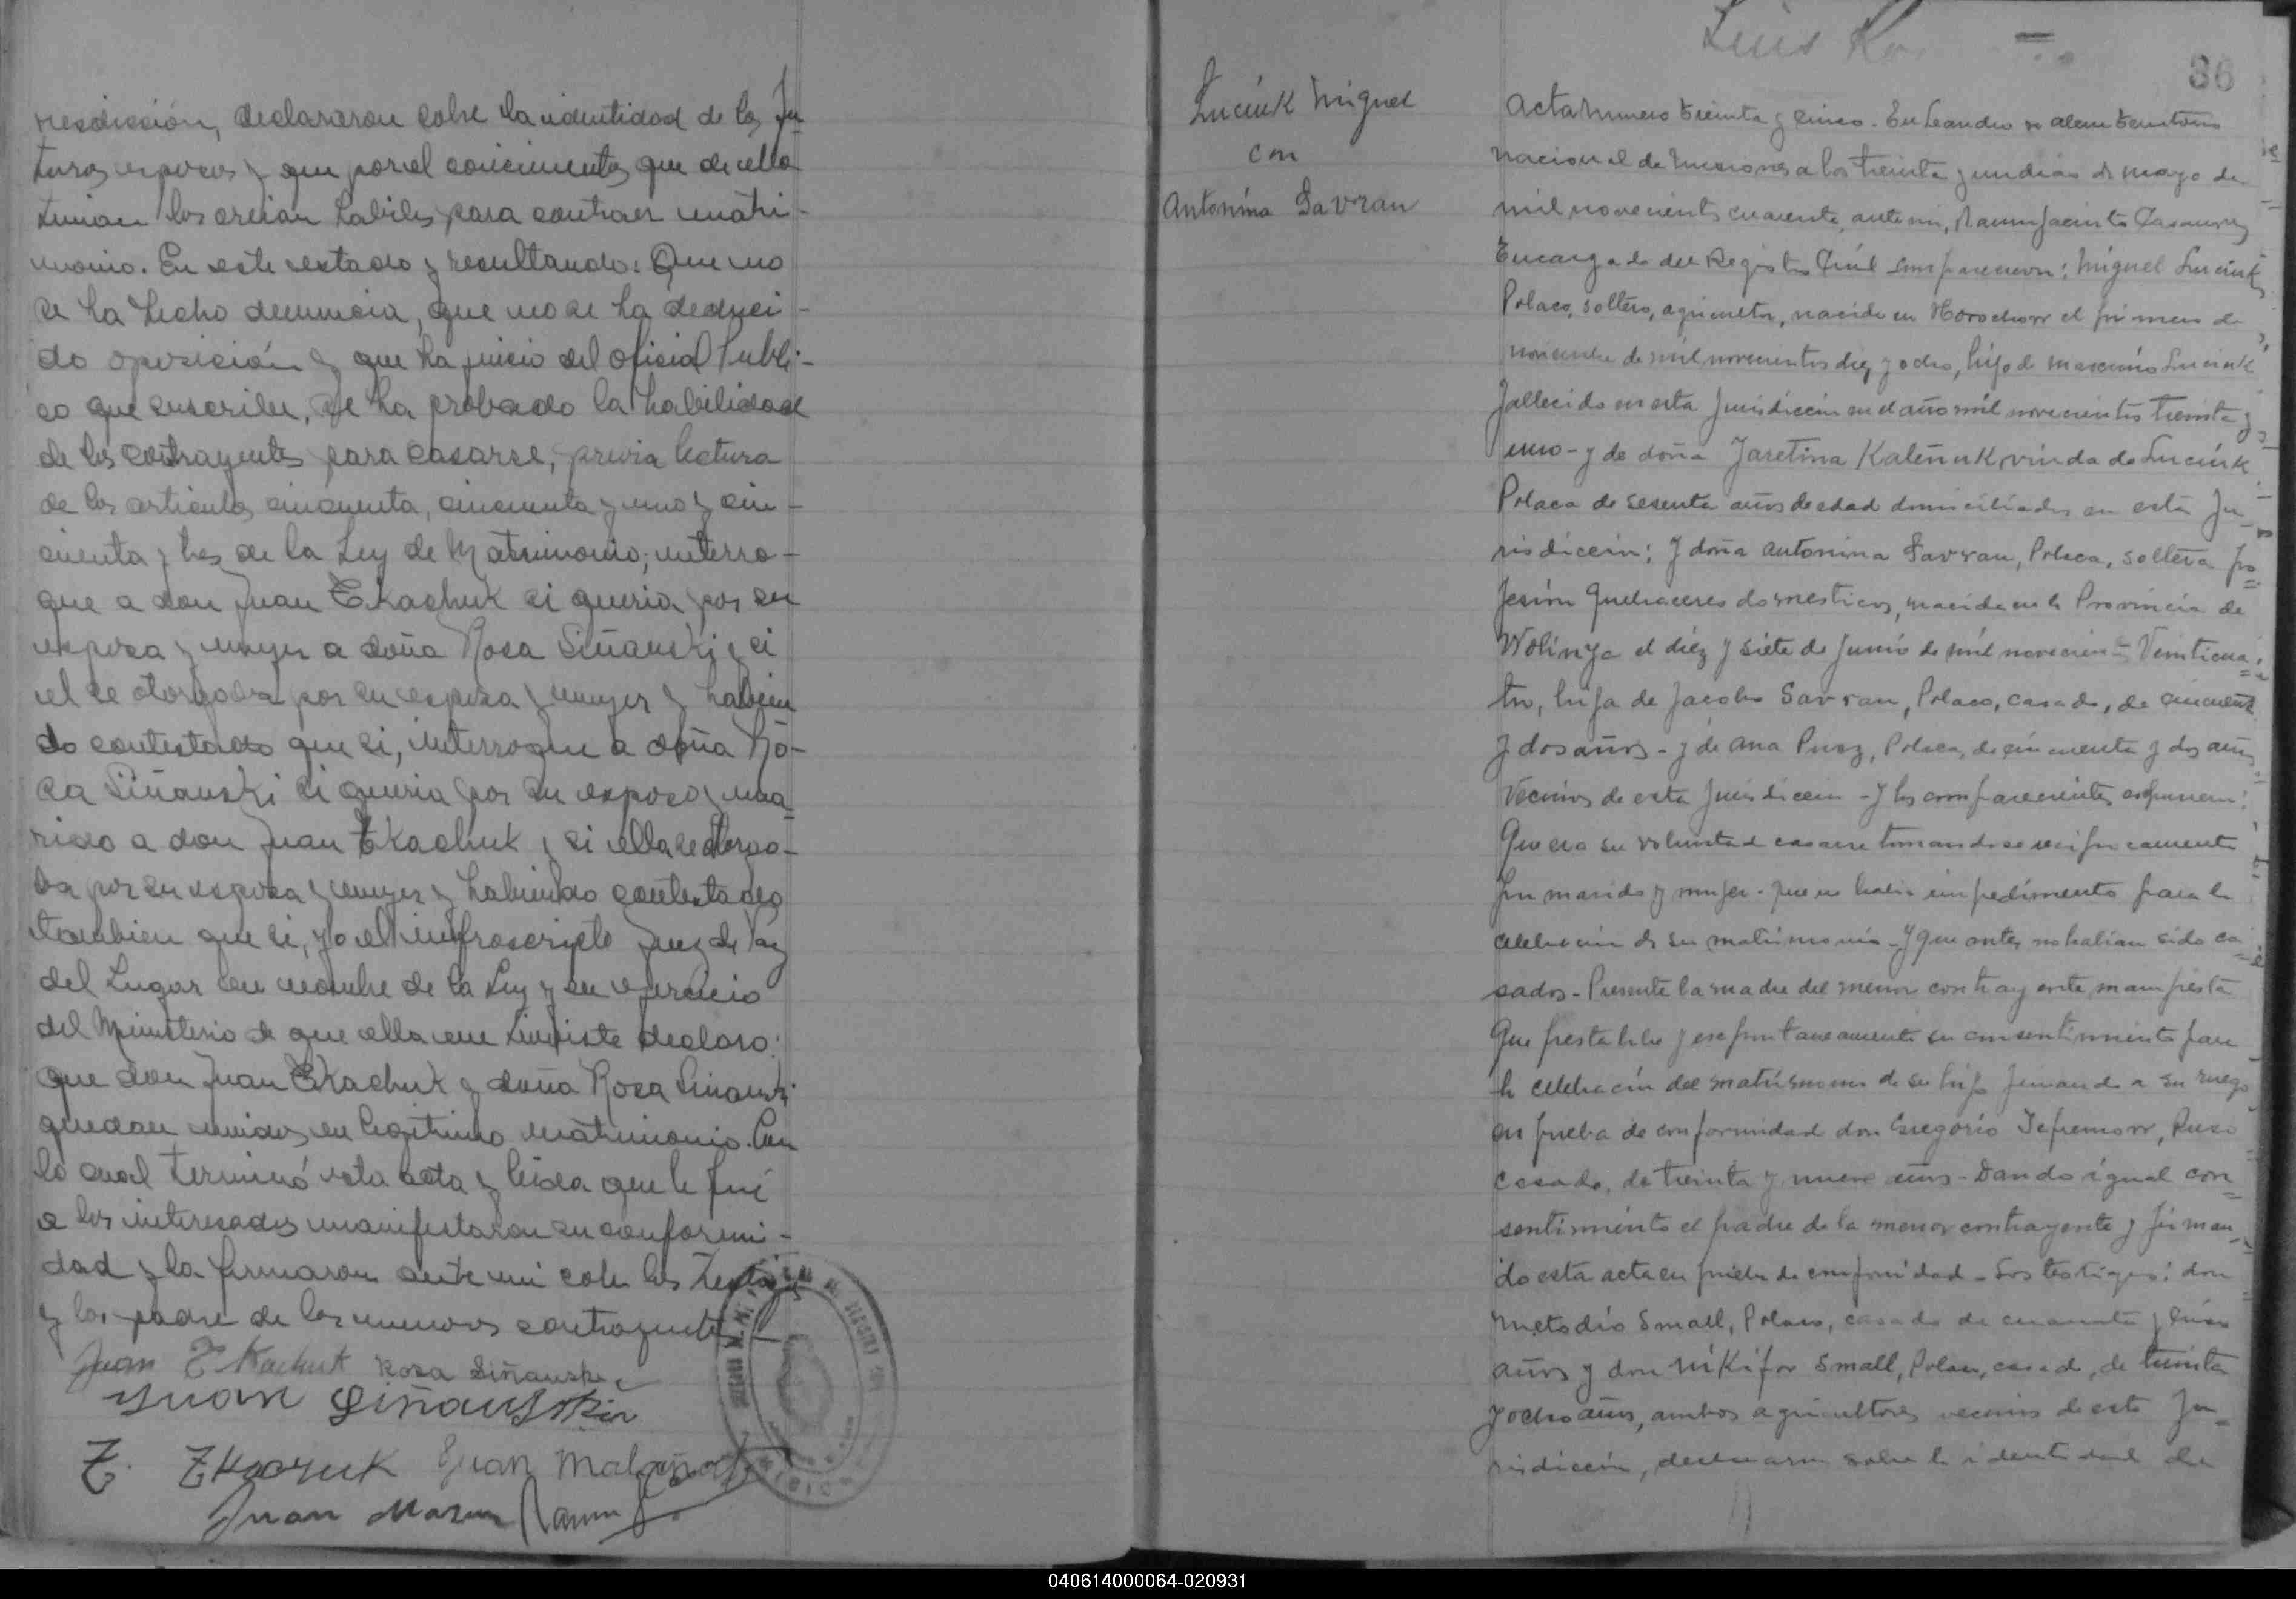 risdicsión, declararon sobre la identidad de los fu
turos esposos y que por el conocimiento que de ellos
tenian los creian habiles para contraer matri-
monio. En este estado y resultando: Que no
se ha hecho denuncia, que no se ha deduci-
do oposición y que ha juicio del oficial Publi-
co que suscribe, se ha probado la habilidad
de los contrayentes para casarse, previa lectura
de los articulos cincuenta, cincuenta y uno y cin-
cuenta y tres de la Ley de Matrimonio, interro-
gue a don Juan Tkachuk si queria por su
esposa y mujer a doña Rosa Siñauski y si
el se otorgaba por su esposa y mujer y habien
do contestado que si, interrogue a doña Ro-
sa Siñauski si queria por su esposo y ma-
rido a don Juan Tkachuk y si ella se otorga-
ba por su esposa y mujer y habiendo contestado
tambien que si, yo el infrascripto Juez de Paz
del Lugar en nombre de la Ley y en ejercicio
del Ministerio de que ella me inviste declaro:
que don Juan Tkachuk y doña Rosa Siñauski
quedan unidos en legitimo matrimonio. Con
lo cual terminó esta acta y leida que le fué
a los interesados manifestaron su conformi-
dad y la firmaron ante mi con los testigos
y los padre de los menores contrayentes
Juan Tkachuk Rosa Siñauski
Juan Siñauski
Z. Zkaczuk Juan
Juan Ramon
Luciuk Miguel
con
Antonina Savran
Luis
36
Acta Numero treinta y cinco. En Leandro N Alem territorio
nacional de Misiones a los treinta y un dias de mayo de
mil novecientos cuarenta, ante mi, Ramon Jacinto
Encargado del Registro Civil comparecieron: Miguel Luciuk
Polaco, soltero, agricultor, nacido en Horochow el primero de
noviembre de mil novecientos diez y ocho, hijo de Maximo Luciuk
fallecido en esta Jurisdiccion en el año mil novecientos treinta y
uno - y de doña Jaretina Kaleñuk, viuda de Luciuk
Polaca de sesenta años de edad domiciliados en esta Ju
risdiccion; Y doña Antonina Savran, Polaca, soltera pro
fesion Quehaceres domesticos, nacida en la Provincia de
Wolinya el diez y siete de Junio de mil novecientos Veinticua
tro, hija de Jacobo Savran, Polaco, casado, de cincuenta
y dos años - y de Ana Puaz, Polaca, de cincuenta y dos años
Vecinos de esta Jurisdiccion - Y los comparecientes expusieron:
Que era su voluntad casarse tomandose reciprocamente
por marido y mujer - que no habia impedimento para la
celebracion de su matrimonio - Y que antes no habian sido ca
sados - Presente la madre del menor contrayente manifiesta
Que presta libre y espontaneamente su consentimiento para
la celebracion del matrimonio de su hijo firmando a su ruego
en prueba de conformidad don Gregorio Jefremow, Ruso
casado, de treinta y nueve años - Dando igual con
sentimiento el padre de la menor contrayente y firman
do esta acta en prueba de conformidad - Los testigos: don
Metodio Small, Polaco, casado de cuarenta y cinco
años y don Nikifor Small, Polaco, casado, de treinta
y ocho años, ambos agricultores vecinos de esta Ju
risdiccion, declararon sobre la identidad de
040614000064-020931